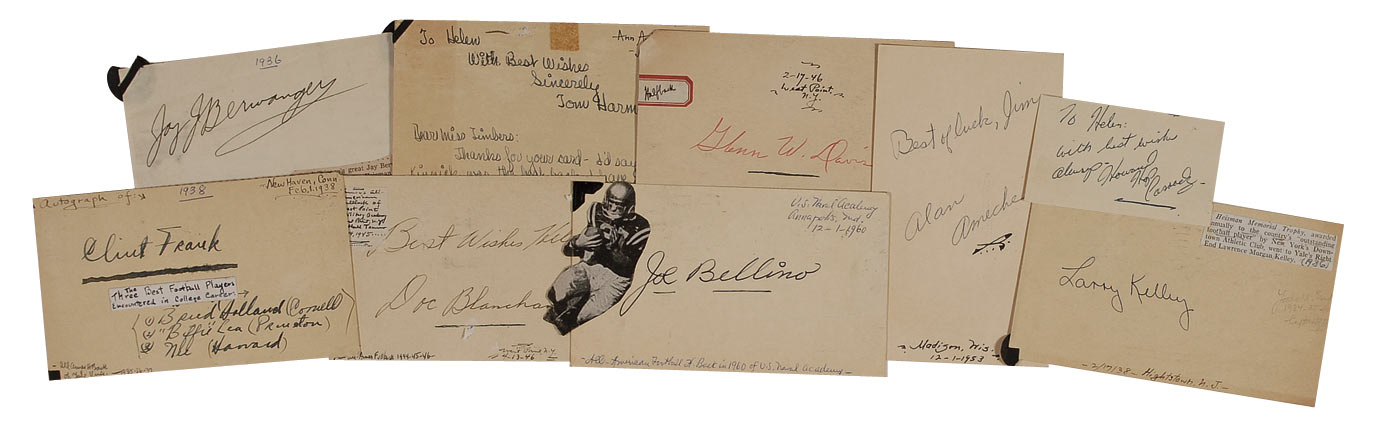 1936
Jay J Berwanger
great Jay Ber
To Helen —
With Best Wishes
Sincerely
Tom Harm
Dear Miss Timbers:
Thanks for your card - I'd say
Kinnick was the best back
Ann A
Halfback
2-17-46
West Point
N.Y.
Glenn W. Davis
Best of luck, Jim
Alan
Ameche
Madison, Wis.
12-1-1953
To Helen:
with best wishes
always Howard
"Hop" Cassady
Autograph of:
1938
New Haven, Conn
Feb. 1, 1938
Clint Frank
The
Three Best Football Players
Encountered in College Career:
(1) Brud Holland (Cornell)
(2) "Biffie" Lea (Princeton)
(3) Nee (Harvard)
Best Wishes, Hele
Doc Blanchar
West Point N.Y.
U.S. Naval Academy
Annapolis, Md.
12-1-1960
Joe Bellino
-All-American Football & Best in 1960 of U.S. Naval Academy-
Heisman Memorial Trophy, awarded
annually to the country's "outstanding
football player" by New York's Down-
town Athletic Club, went to Yale's Right
End Lawrence Morgan Kelley. (1936)
Larry Kelley
-2/17/38- Hightstown, N.J.-